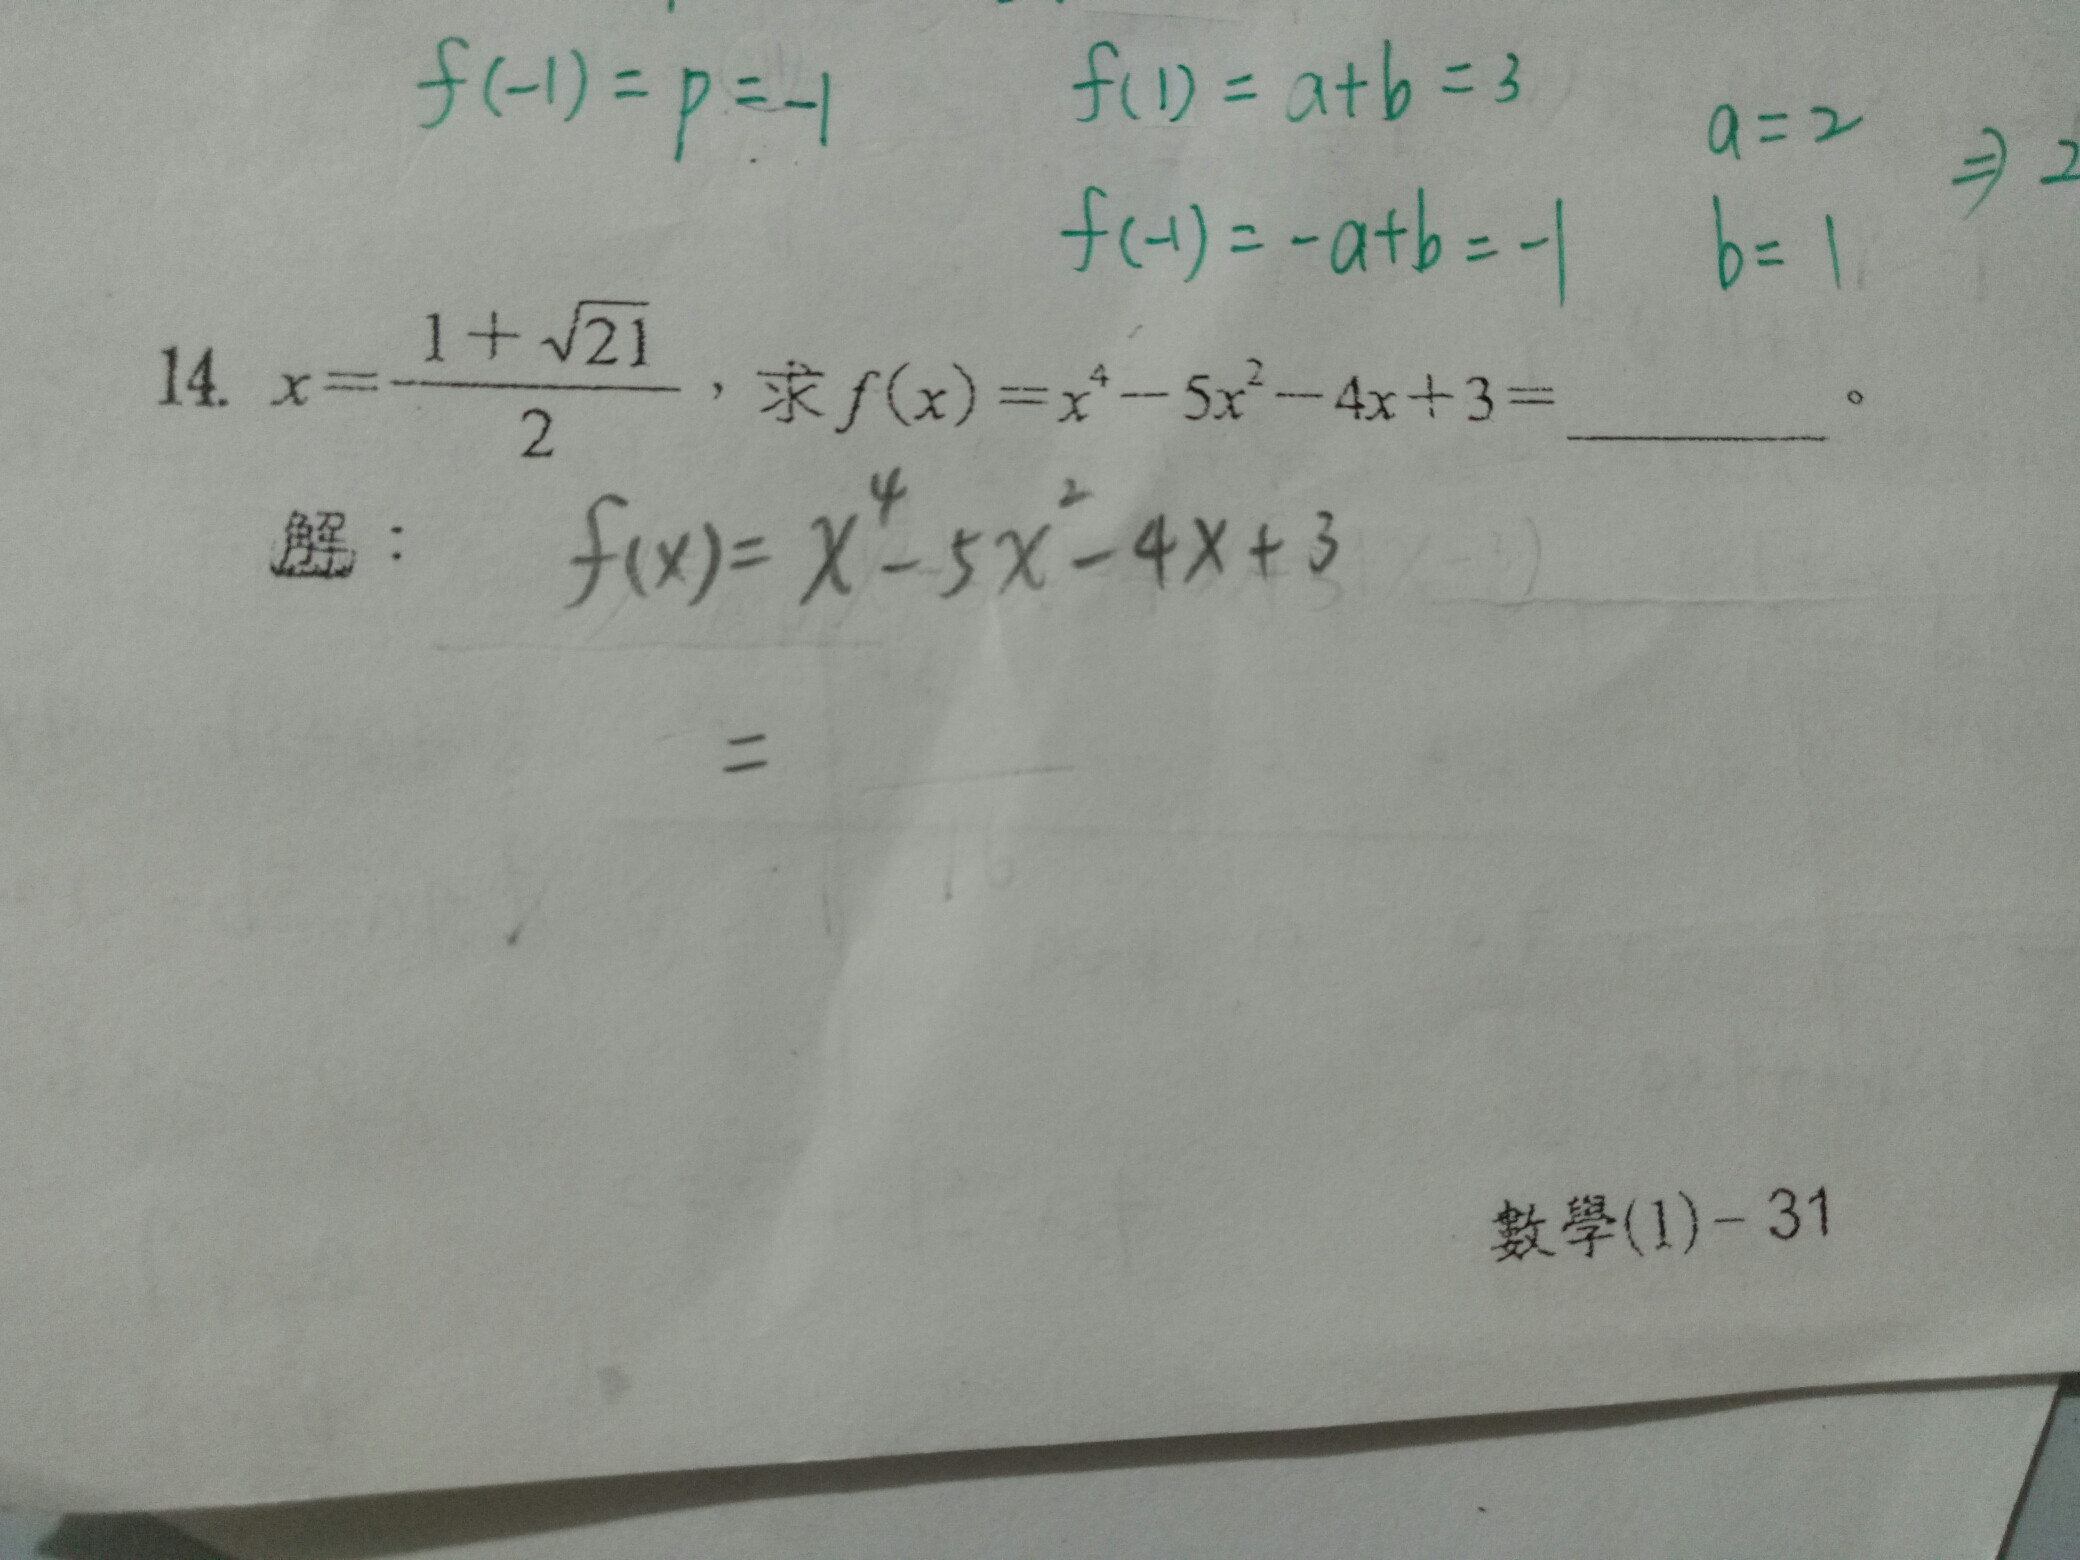 f(-1) = p = -1
f(1) = a+b = 3
a = 2
f(-1) = -a+b = -1
b = 1
⇒ 2
14. x = \frac{1+\sqrt{21}}{2} , 求 f(x) = x⁴ - 5x² - 4x + 3 = ________ 。
解 : f(x) = x⁴ - 5x² - 4x + 3
=
數學(1) - 31